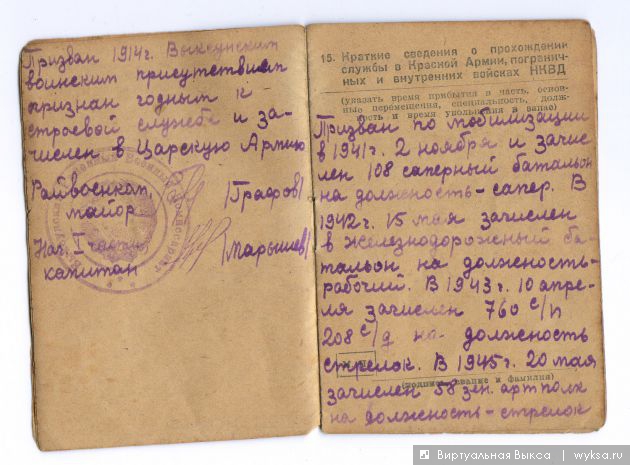 Призван 1914г. Выксунским
воинским присутствием
признан годным к
строевой службе и за-
числен в Царскую Армию
Райвоенком,
майор
/Графов/
Нач. I части
капитан
/Марышев/
15. Краткие сведения о прохождении
службы в Красной Армии, погранич-
ных и внутренних войсках НКВД
(указать время прибытия в часть, основ-
ные перемещения, специальность, долж-
ность и время увольнения в запас)
Призван по мобилизации
в 1941г. 2 ноября и зачис
лен 108 саперный батальон
на должность-сапер. В
1942г. 15 мая зачислен
в железнодорожный ба-
тальон на должность-
рабочий. В 1943г. 10 апре-
ля зачислен 760 с/п
208 с/д на должность
стрелок. В 1945г. 20 мая
(подпись, звание и фамилия)
зачислен 58 зен. арт полк
на должность-стрелок
Виртуальная Выкса | wyksa.ru